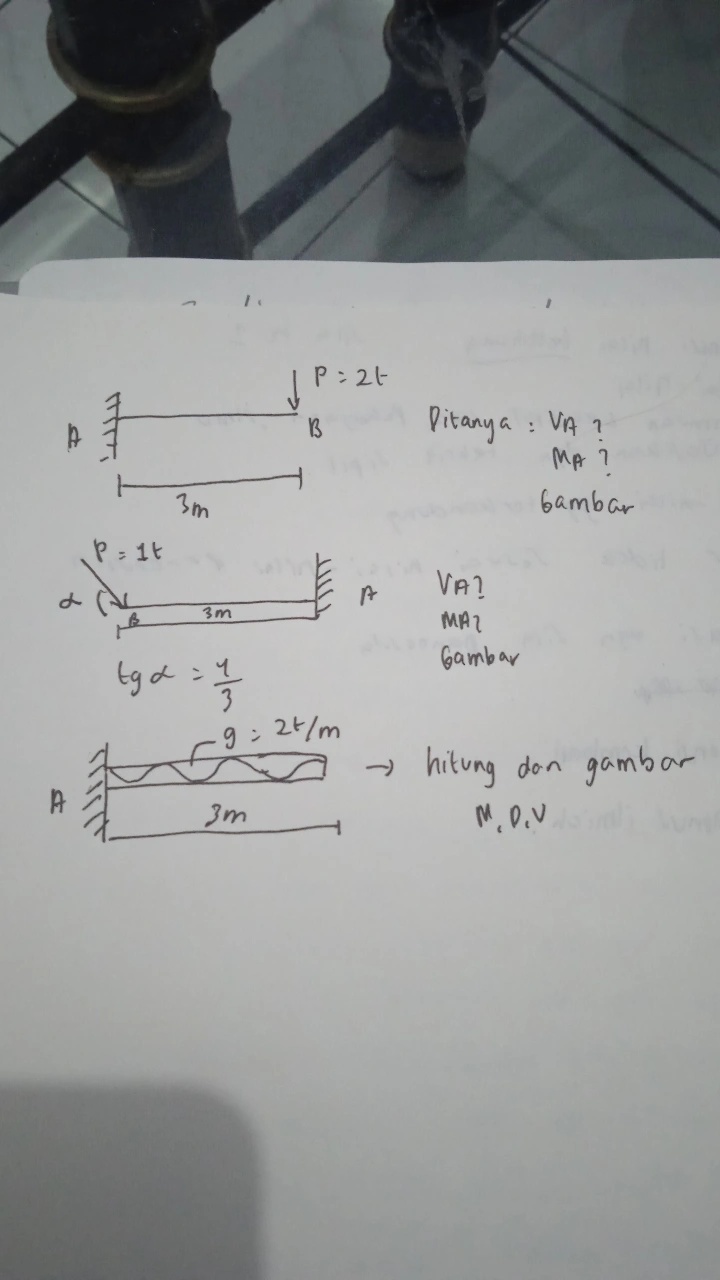 P = 2t
A
B
3m
Ditanya : VA ?
MA ?
Gambar
P = 1t
α
B
3m
A
VA?
MA?
Gambar
tg α = 4/3
q = 2t/m
A
3m
→ hitung dan gambar
M, D, V